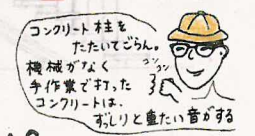 コンクリート柱を
たたいてごらん。
機械がなく
手作業で打った
コンクリートは、
ずっしりと重たい音がする
コン
コン